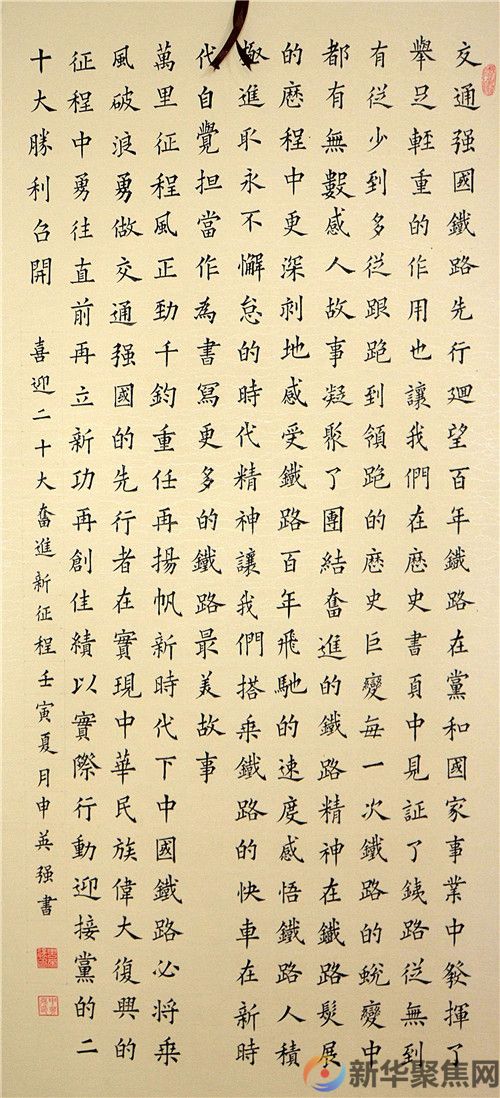 交通强國鐵路先行廻望百年鐵路在黨和國家事業中發揮了
舉足輕重的作用也讓我們在歷史書頁中見証了銕路從無到
有從少到多從跟跑到領跑的歷史巨變每一次鐵路的蛻變中
都有無數感人故事凝聚了團結奮進的鐵路精神在鐵路髮展
的歷程中更深刺地感受鐵路百年飛馳的速度感悟鐵路人積
極進取永不懈怠的時代精神讓我們搭乘鐵路的快車在新時
代自覺担當作為書寫更多的鐵路最美故事
萬里征程風正勁千鈞重任再揚帆新時代下中國鐵路必將乘
風破浪勇做交通强國的先行者在實現中華民族偉大復興的
征程中勇往直前再立新功再創佳績以實際行動迎接黨的二
十大勝利召開
喜迎二十大奮進新征程壬寅夏月申英强書
新华聚焦网